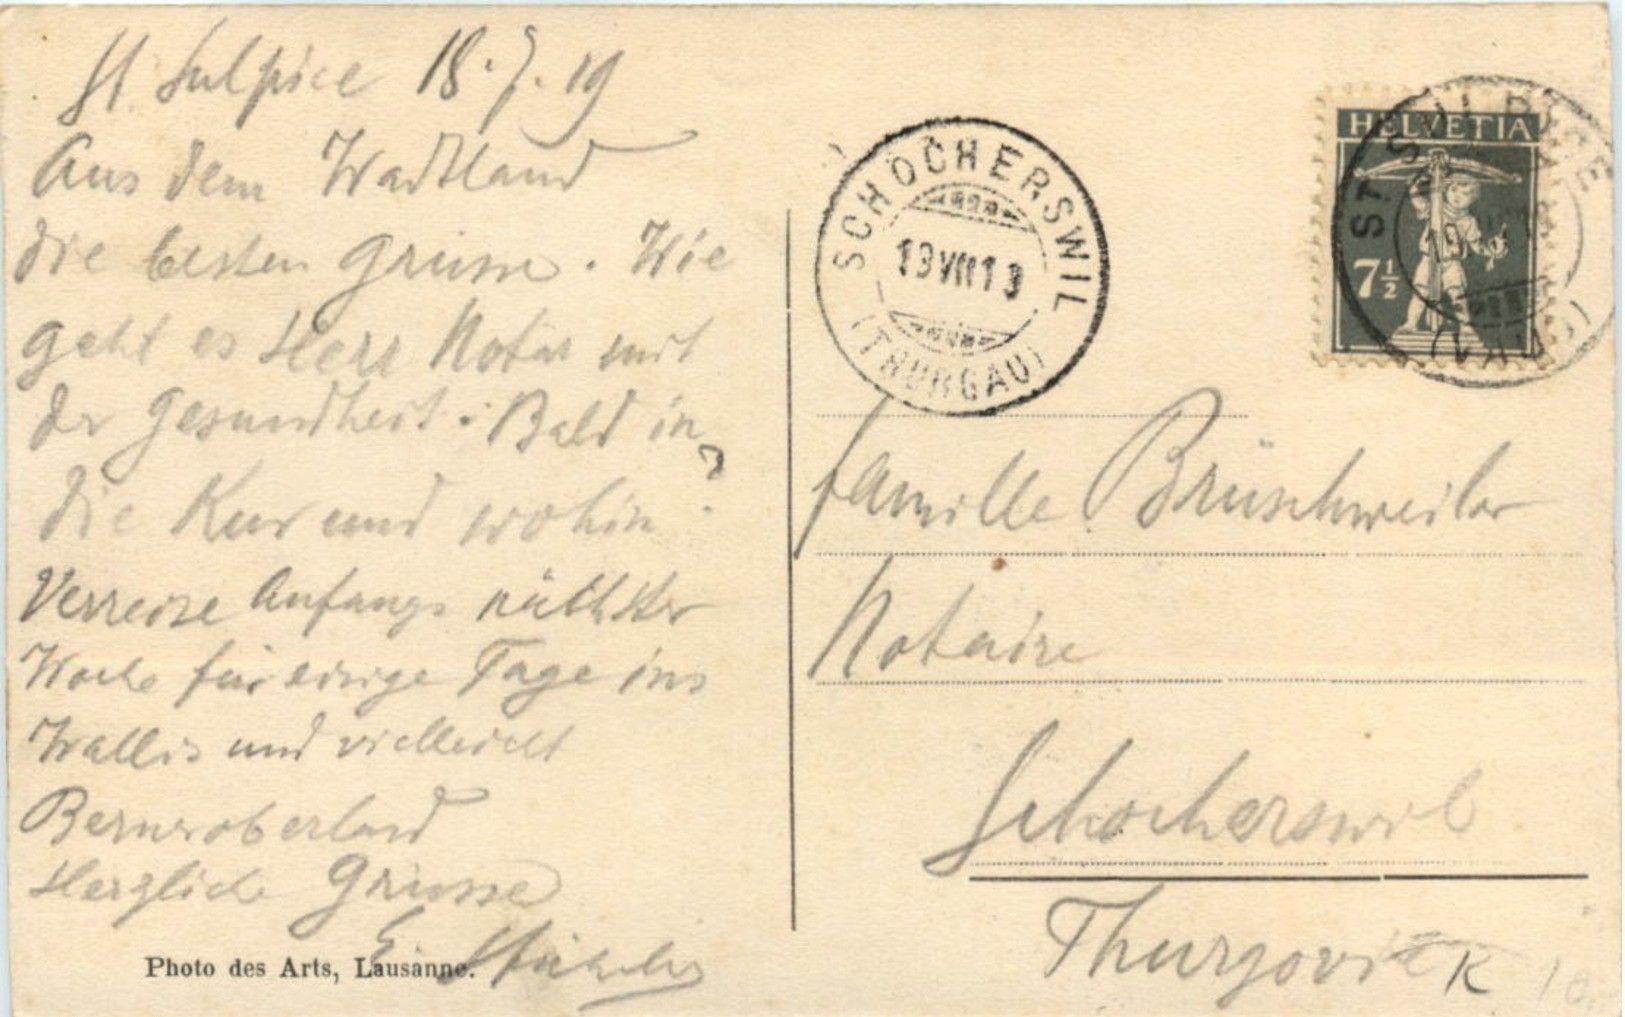 St. Sulpice 18.7.19
Aus dem Wadtland
die besten Grüsse. Wie
geht es Herr Notar mit
der Gesundheit. Bald in
die Kur und wohin?
Verreise Anfangs nächster
Woche für einige Tage ins
Wallis und vielleicht
Berneroberland
Herzliche Grüsse
E.
Photo des Arts, Lausanne.
SCHOCHERSWIL
19 VII 19
(THURGAU)
HELVETIA
7½
ST. SULPICE
(VAUD)
Famille Brüschweiler
Notaire
Schocherswil
Thurgovie